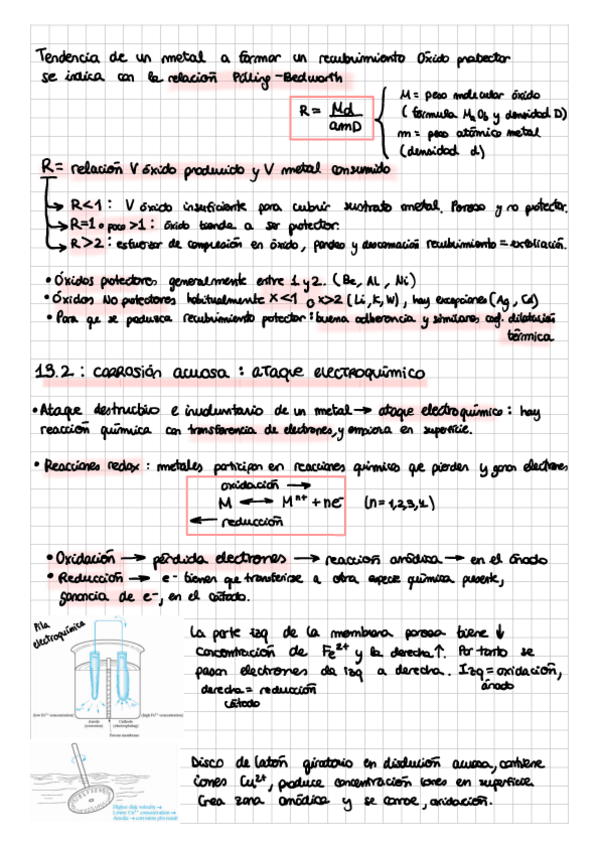 Tendencia de un metal a formar un recubrimiento óxido protector
se indica con la relación Pilling-Bedworth
R = Md / amD
M = peso molecular óxido
(fórmula MaOb y densidad D)
m = peso atómico metal
(densidad d)
R = relación V óxido producido y V metal consumido
R<1 : V óxido insuficiente para cubrir sustrato metal. Poroso y no protector.
R=1 o poco >1 : óxido tiende a ser protector.
R>2 : esfuerzor de compresión en óxido, pandeo y descamación recubrimiento = exfoliación.
• Óxidos protectores generalmente entre 1 y 2. (Be, Al, Ni)
• Óxidos No protectores habitualmente x<1 o x>2 (Li, K, W), hay excepciones (Ag, Cd)
• Para que se produzca recubrimiento protector: buena adherencia y similares coef. dilatación
térmica
13.2 : corrosión acuosa : ataque electroquímico
• Ataque destructivo e involuntario de un metal → ataque electroquímico : hay
reacción química con transferencia de electrones, y empieza en superficie.
• Reacciones redox : metales participan en reacciones químicas que pierden y ganan electrones
oxidación →
M ↔ Mⁿ⁺ + ne⁻ (n = 1,2,3,4)
← reducción
• Oxidación → pérdida electrones → reacción anódica → en el ánodo
• Reducción → e⁻ tienen que transferirse a otra especie química presente,
ganancia de e⁻, en el cátodo.
Pila
electroquímica
La parte izq de la membrana porosa tiene ↓
concentración de Fe²⁺ y la derecha ↑. Por tanto se
pasan electrones de izq a derecha. Izq = oxidación,
ánodo
derecha = reducción
cátodo
(low Fe²⁺ concentration)
Anode
(corrosion)
Cathode
(electroplating)
(high Fe²⁺ concentration)
Porous membrane
Disco de latón giratorio en disolución acuosa, contiene
iones Cu²⁺, produce concentración iones en superficie
Crea zona anódica y se corroe, oxidación.
Higher disk velocity →
Lower Cu²⁺ concentration →
Anodic → corrosion pits result